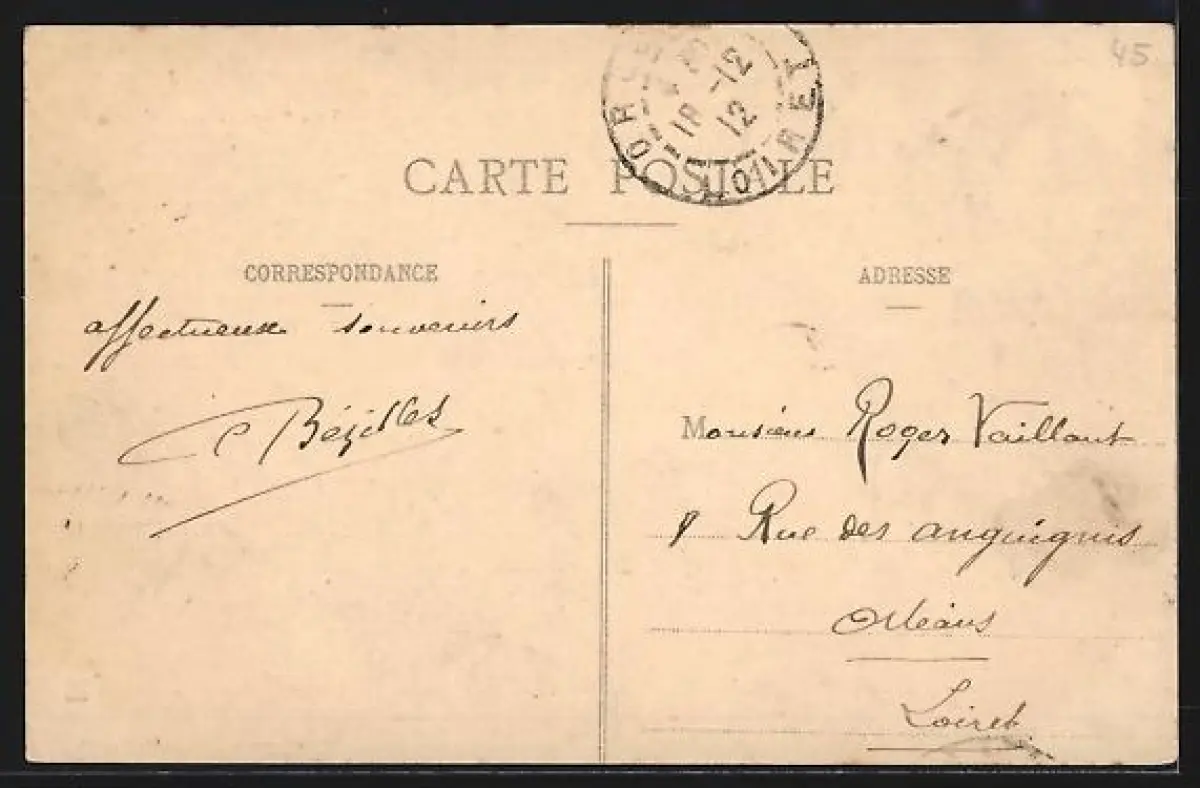 45
OR LOIRET
18 -12
12
CARTE POSTALE
CORRESPONDANCE
affectueux souvenirs
C Bézilles
ADRESSE
Monsieur Roger Vaillant
8 Rue des anguignis
Orléans
Loiret